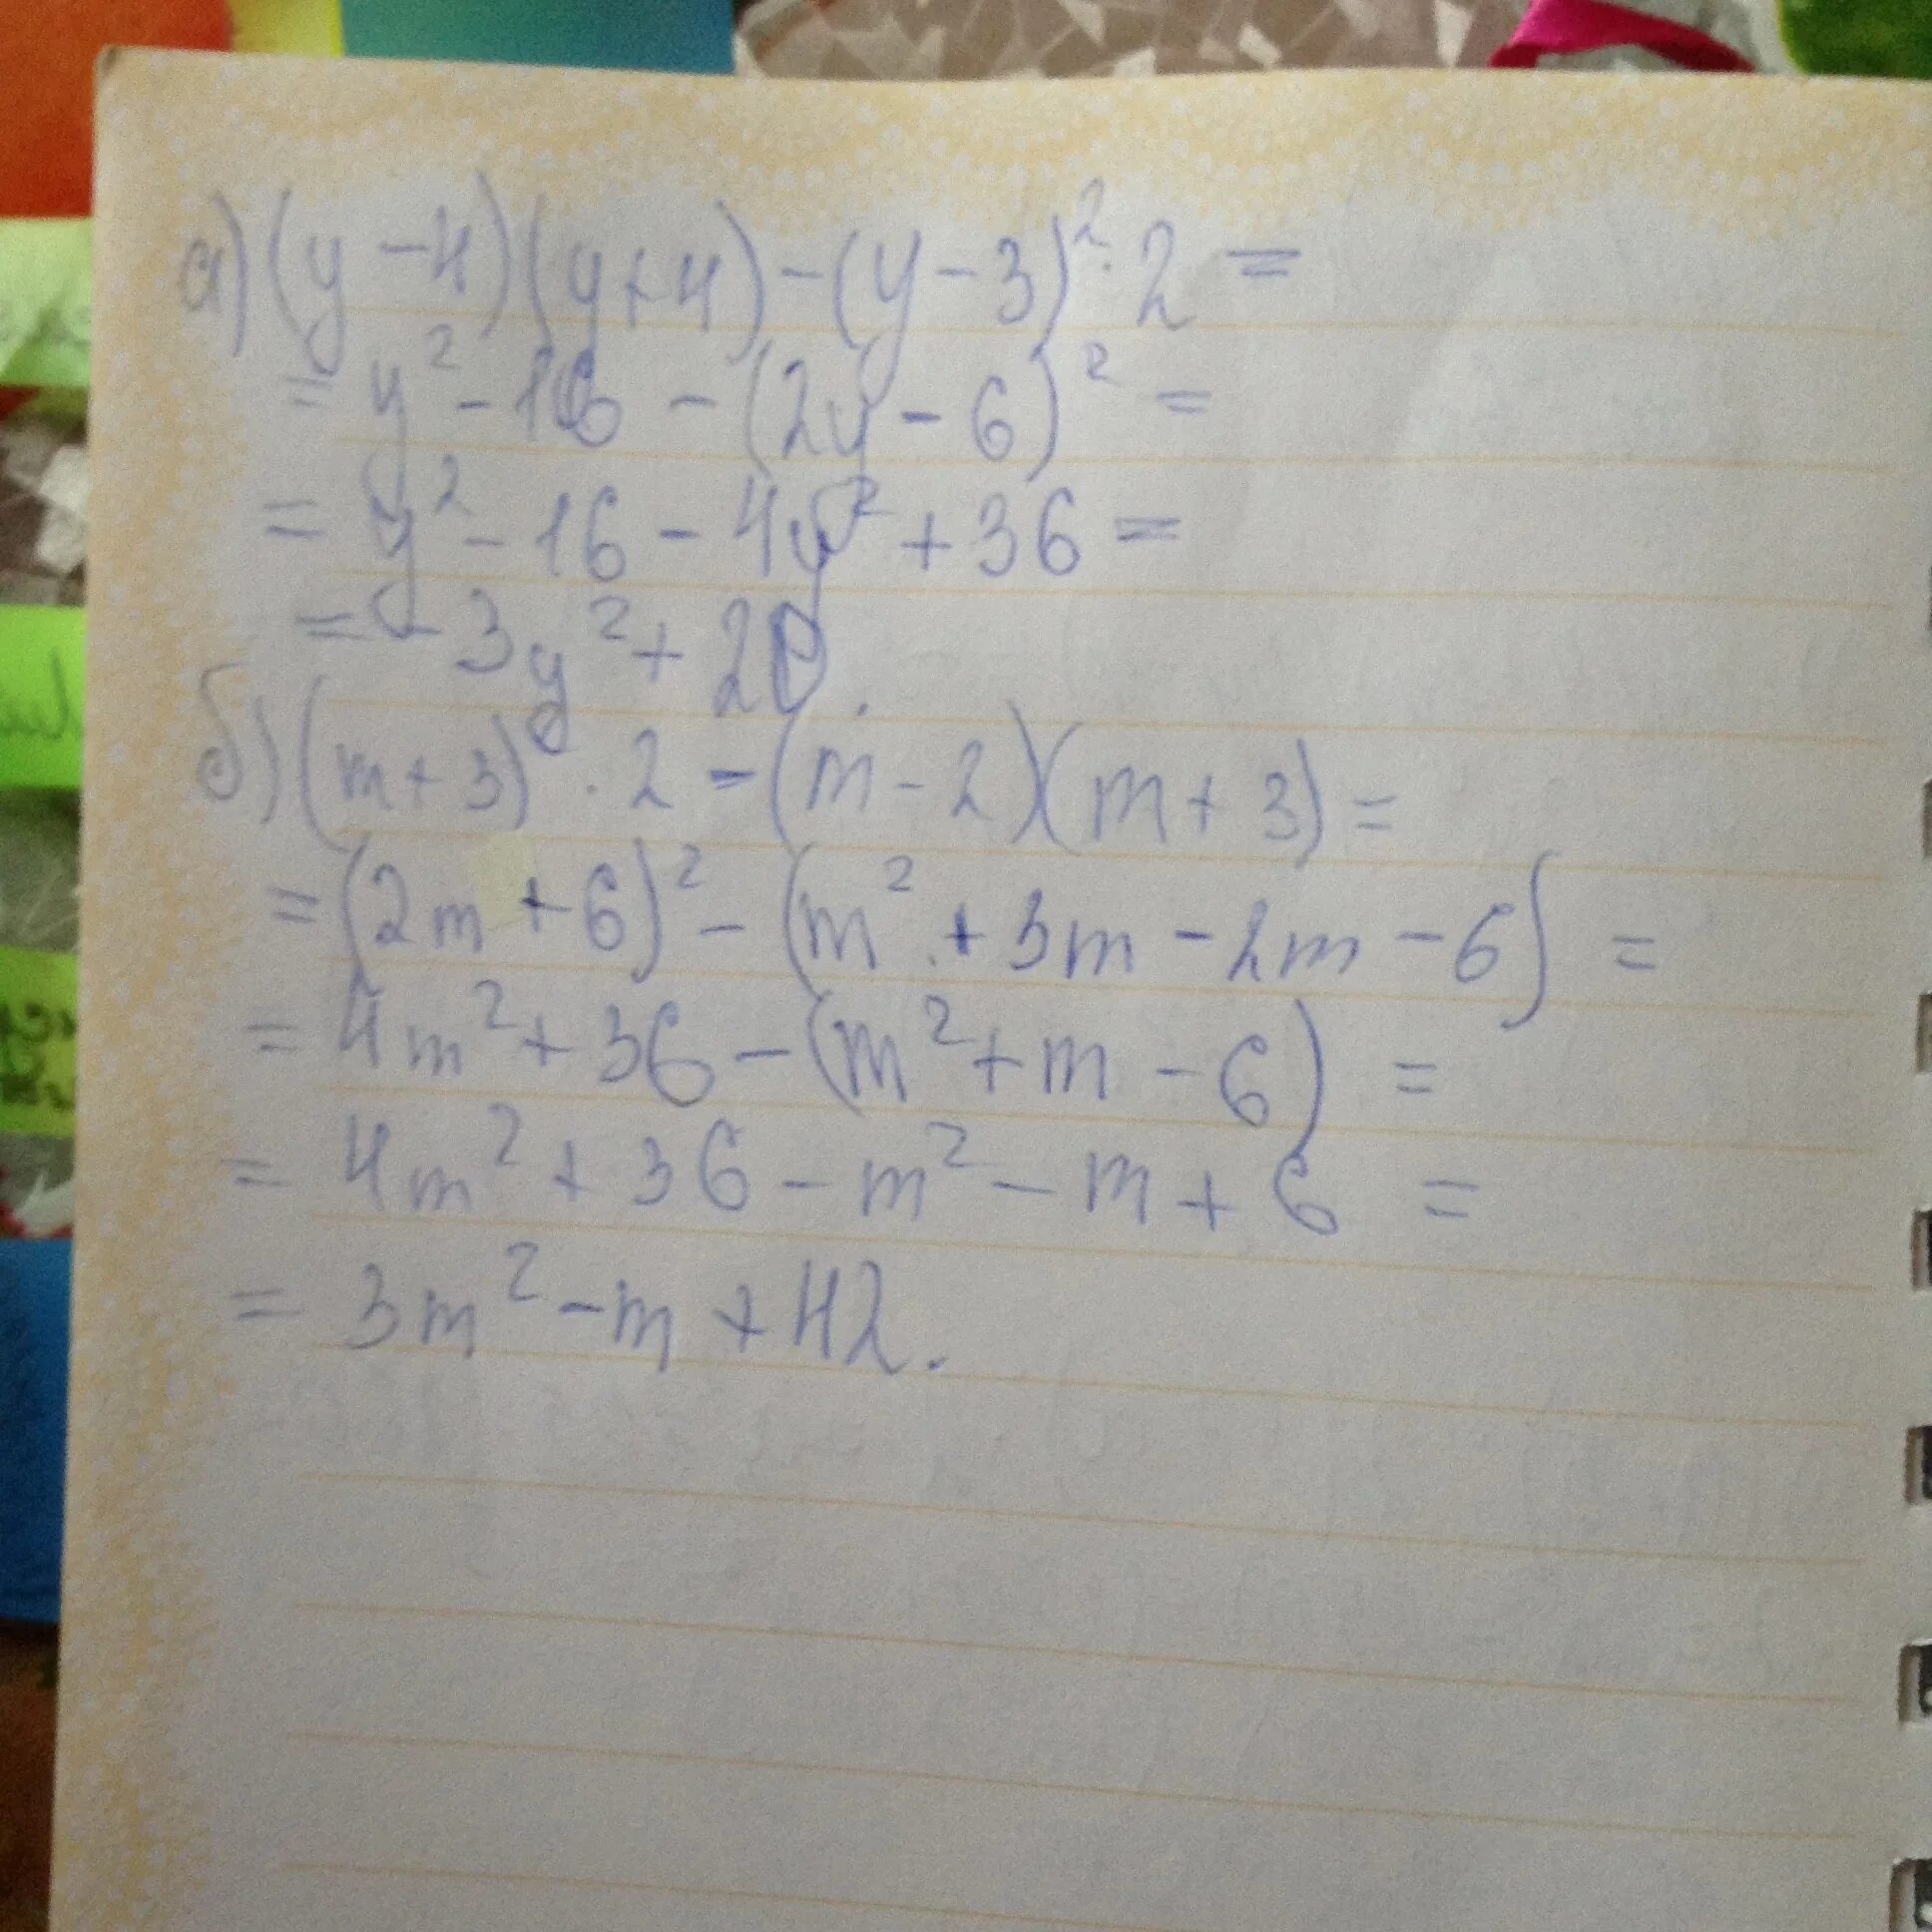 а) (y - 4)(y + 4) - (y - 3)² · 2 =
= y² - 16 - (2y - 6)² =
= y² - 16 - 4y² + 36 =
= - 3y² + 20.
б) (m + 3)² · 2 - (m - 2)(m + 3) =
= (2m + 6)² - (m² + 3m - 2m - 6) =
= 4m² + 36 - (m² + m - 6) =
= 4m² + 36 - m² - m + 6 =
= 3m² - m + 42.